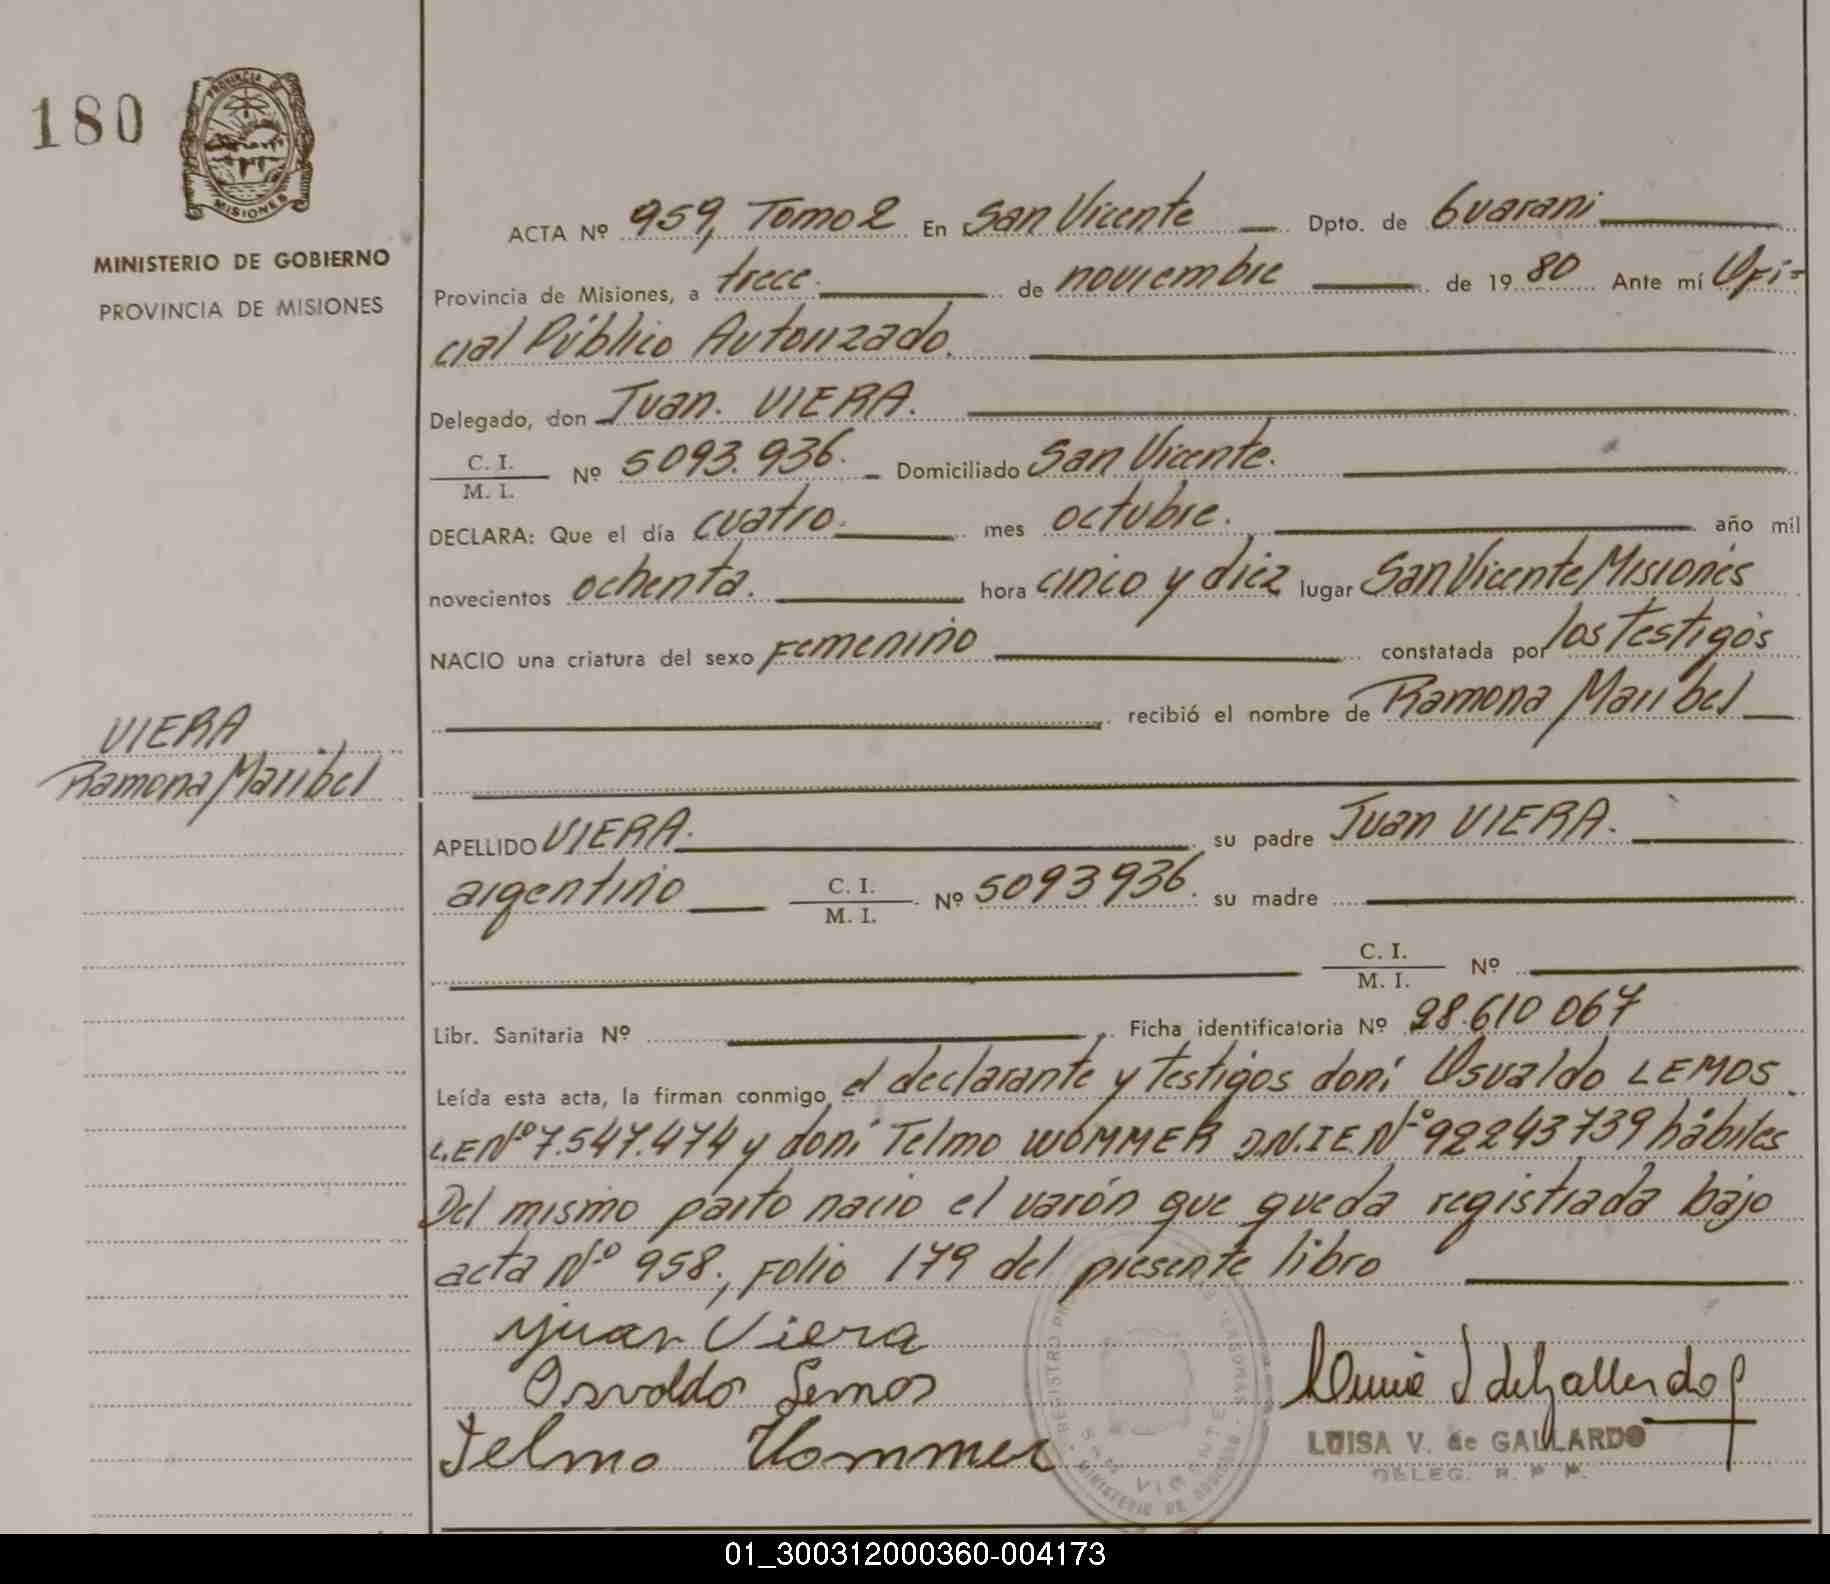 180
PROVINCIA DE
MISIONES
MINISTERIO DE GOBIERNO
PROVINCIA DE MISIONES
ACTA Nº 959, Tomo 2 En San Vicente Dpto. de Guarani
Provincia de Misiones, a trece. de noviembre de 1980 Ante mí Ofi=
cial Público Autorizado.
Delegado, don Juan. VIERA.
C. I.
M. I. Nº 5093.936. Domiciliado San Vicente.
DECLARA: Que el día cuatro. mes octubre. año mil
novecientos ochenta. hora cinco y diez lugar San Vicente Misiones
NACIO una criatura del sexo Femenino constatada por los Testigos
recibió el nombre de Ramona Maribel
VIERA
Ramona Maribel
APELLIDO VIERA. su padre Juan VIERA.
argentino C. I.
M. I. Nº 5093936. su madre
C. I.
M. I. Nº
Libr. Sanitaria Nº Ficha identificatoria Nº 28.610 067
Leída esta acta, la firman conmigo el declarante y Testigos doni Osvaldo LEMOS
L.E Nº 7.547.474 y doni Telmo WOMMER D.N.I E. Nº 92243739 hábiles
Del mismo parto nacio el varón que queda registrada bajo
acta Nº 958., Folio 179 del presente libro
Juan Viera
Osvaldo Lemos
Telmo Wommer
REGISTRO
SAN VICENTE
MINISTERIO DE GOBIERNO
LUISA V. de GALLARDO
DELEG.
01_300312000360-004173